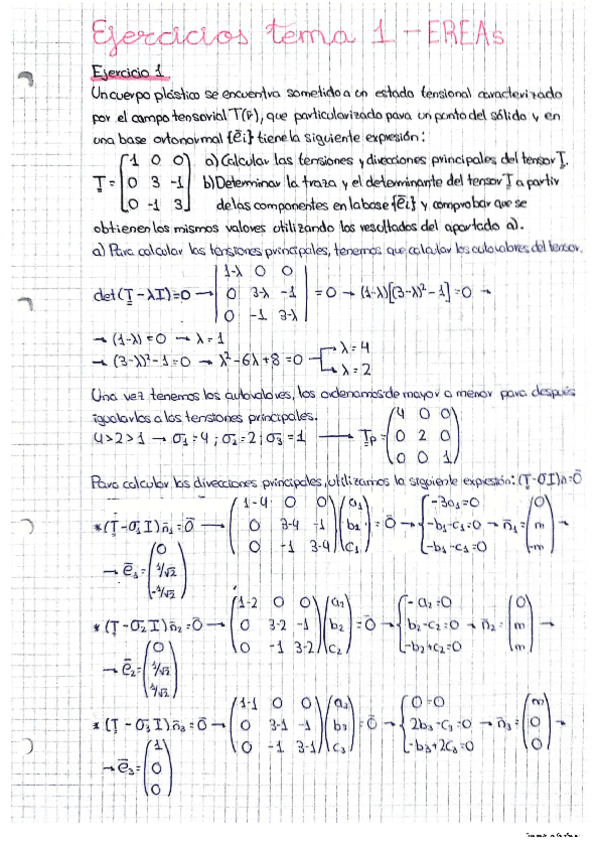 Ejercicios tema 1 - EREAs
Ejercicio 1
Un cuerpo plástico se encuentra sometido a un estado tensional caracterizado
por el campo tensorial T(P), que particularizado para un punto del sólido y en
una base ortonormal {ēi} tiene la siguiente expresión:
T = (1 0 0; 0 3 -1; 0 -1 3) a) Calcular las tensiones y direcciones principales del tensor T.
b) Determinar la traza y el determinante del tensor T a partir
de las componentes en la base {ēi} y comprobar que se
obtienen los mismos valores utilizando los resultados del apartado a).
a) Para calcular las tensiones principales, tenemos que calcular los autovalores del tensor.
det(T-λI)=0 → |1-λ 0 0; 0 3-λ -1; 0 -1 3-λ| = 0 → (1-λ)[(3-λ)²-1]=0 →
→ (1-λ)=0 → λ=1
→ (3-λ)²-1=0 → λ²-6λ+8=0 → λ=4 → λ=2
Una vez tenemos los autovalores, los ordenamos de mayor a menor para después
igualarlos a las tensiones principales.
4>2>1 → σ1=4; σ2=2; σ3=1 → Tp = (4 0 0; 0 2 0; 0 0 1)
Para calcular las direcciones principales, utilizamos la siguiente expresión: (T-σI)n̄=0̄
*(T-σ1I)n̄1=0̄ → (1-4 0 0; 0 3-4 -1; 0 -1 3-4)(a1; b1; c1) = 0̄ → {-3a1=0; -b1-c1=0; -b1-c1=0 → n̄1=(0; m; -m) →
→ ē1=(0; 1/√2; -1/√2)
*(T-σ2I)n̄2=0̄ → (1-2 0 0; 0 3-2 -1; 0 -1 3-2)(a2; b2; c2) = 0̄ → {-a2=0; b2-c2=0; -b2+c2=0 → n̄2=(0; m; m) →
→ ē2=(0; 1/√2; 1/√2)
*(T-σ3I)n̄3=0̄ → (1-1 0 0; 0 3-1 -1; 0 -1 3-1)(a3; b3; c3) = 0̄ → {0=0; 2b3-c3=0; -b3+2c3=0 → n̄3=(m; 0; 0) →
→ ē3=(1; 0; 0)